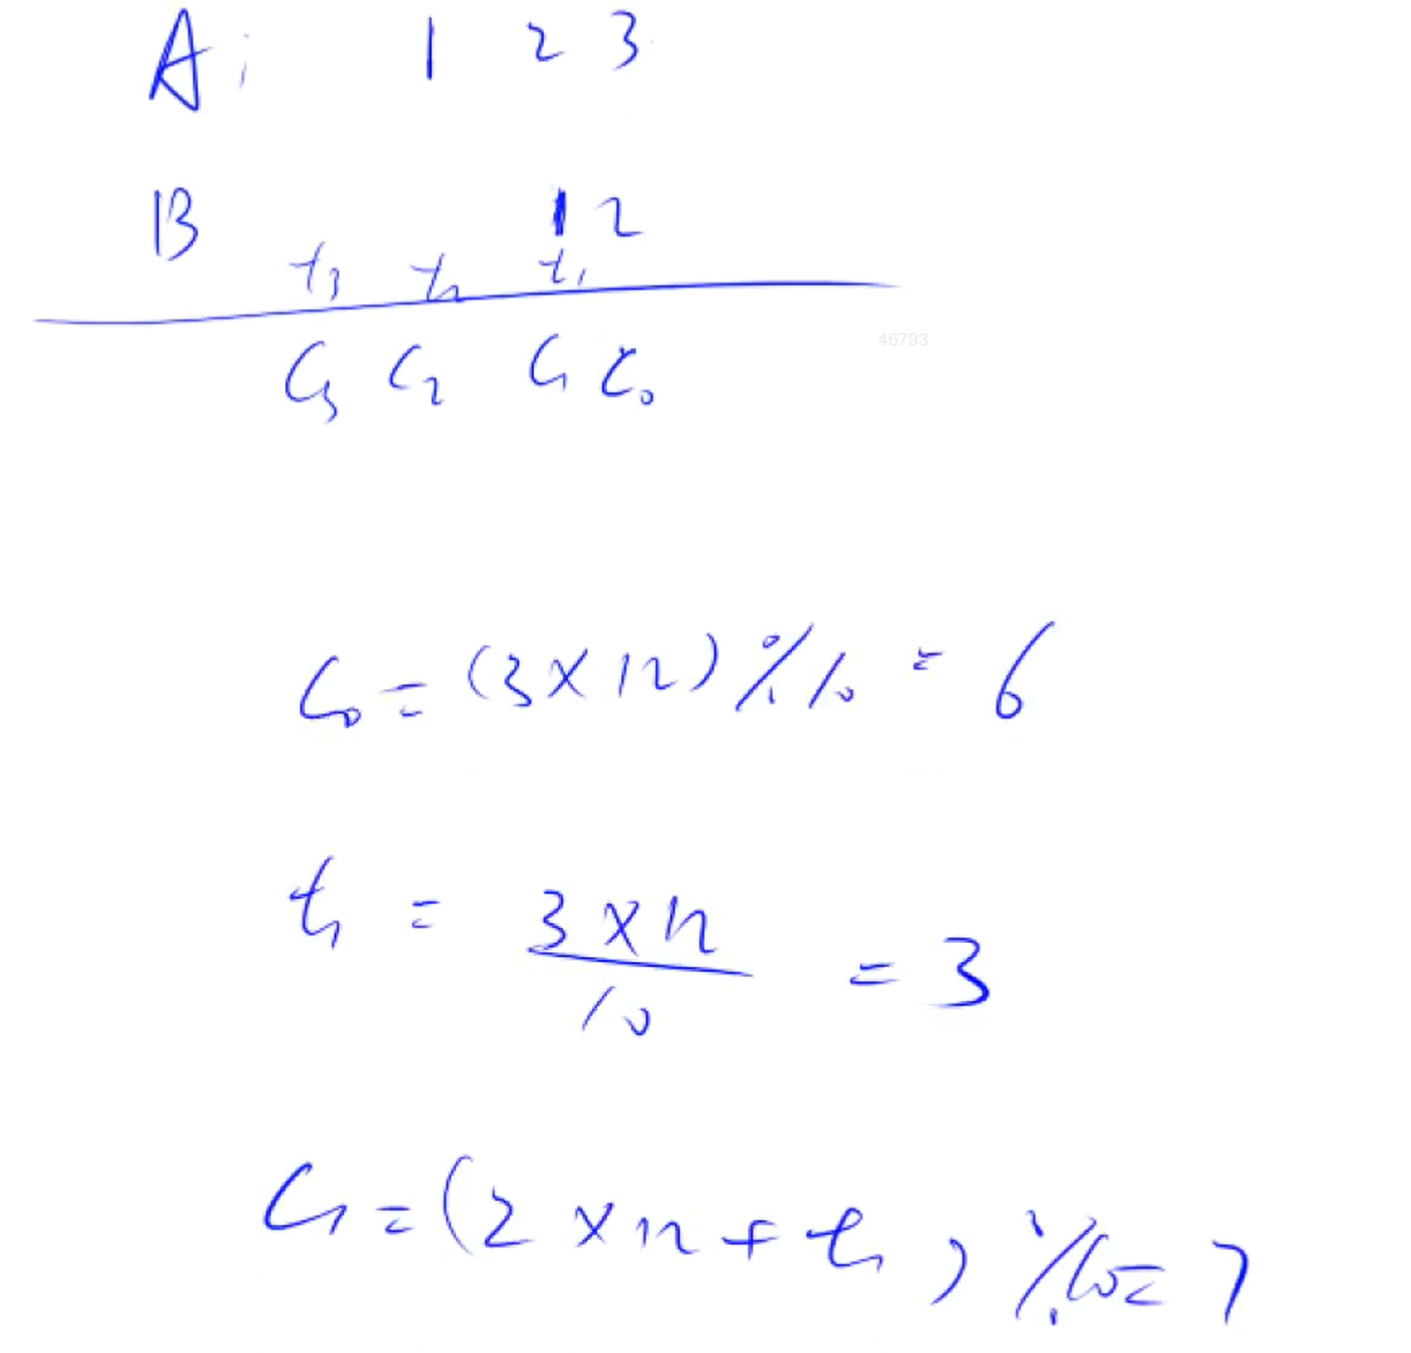 A: 1 2 3
B 1 2
t₃ t₂ t₁
C₃ C₂ C₁ C₀
46793
C₀ = (3 × 12) % 10 = 6
t₁ = 3 × 12 / 10 = 3
C₁ = (2 × 12 + t₁) % 10 = 7